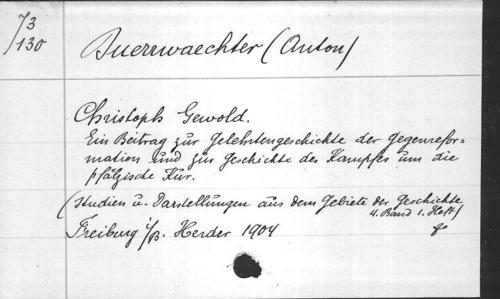 73
/130
Duerrwaechter (Anton)
Christoph Gewold.
Ein Beitrag zur Gelehrtengeschichte der Gegenrefor=
mation und zur Geschichte des Kampfes um die
pfälzische Kur.
(Studien u. Darstellungen aus dem Gebiete der Geschichte
4. Band 1. Heft)
Freiburg i/B. Herder 1904